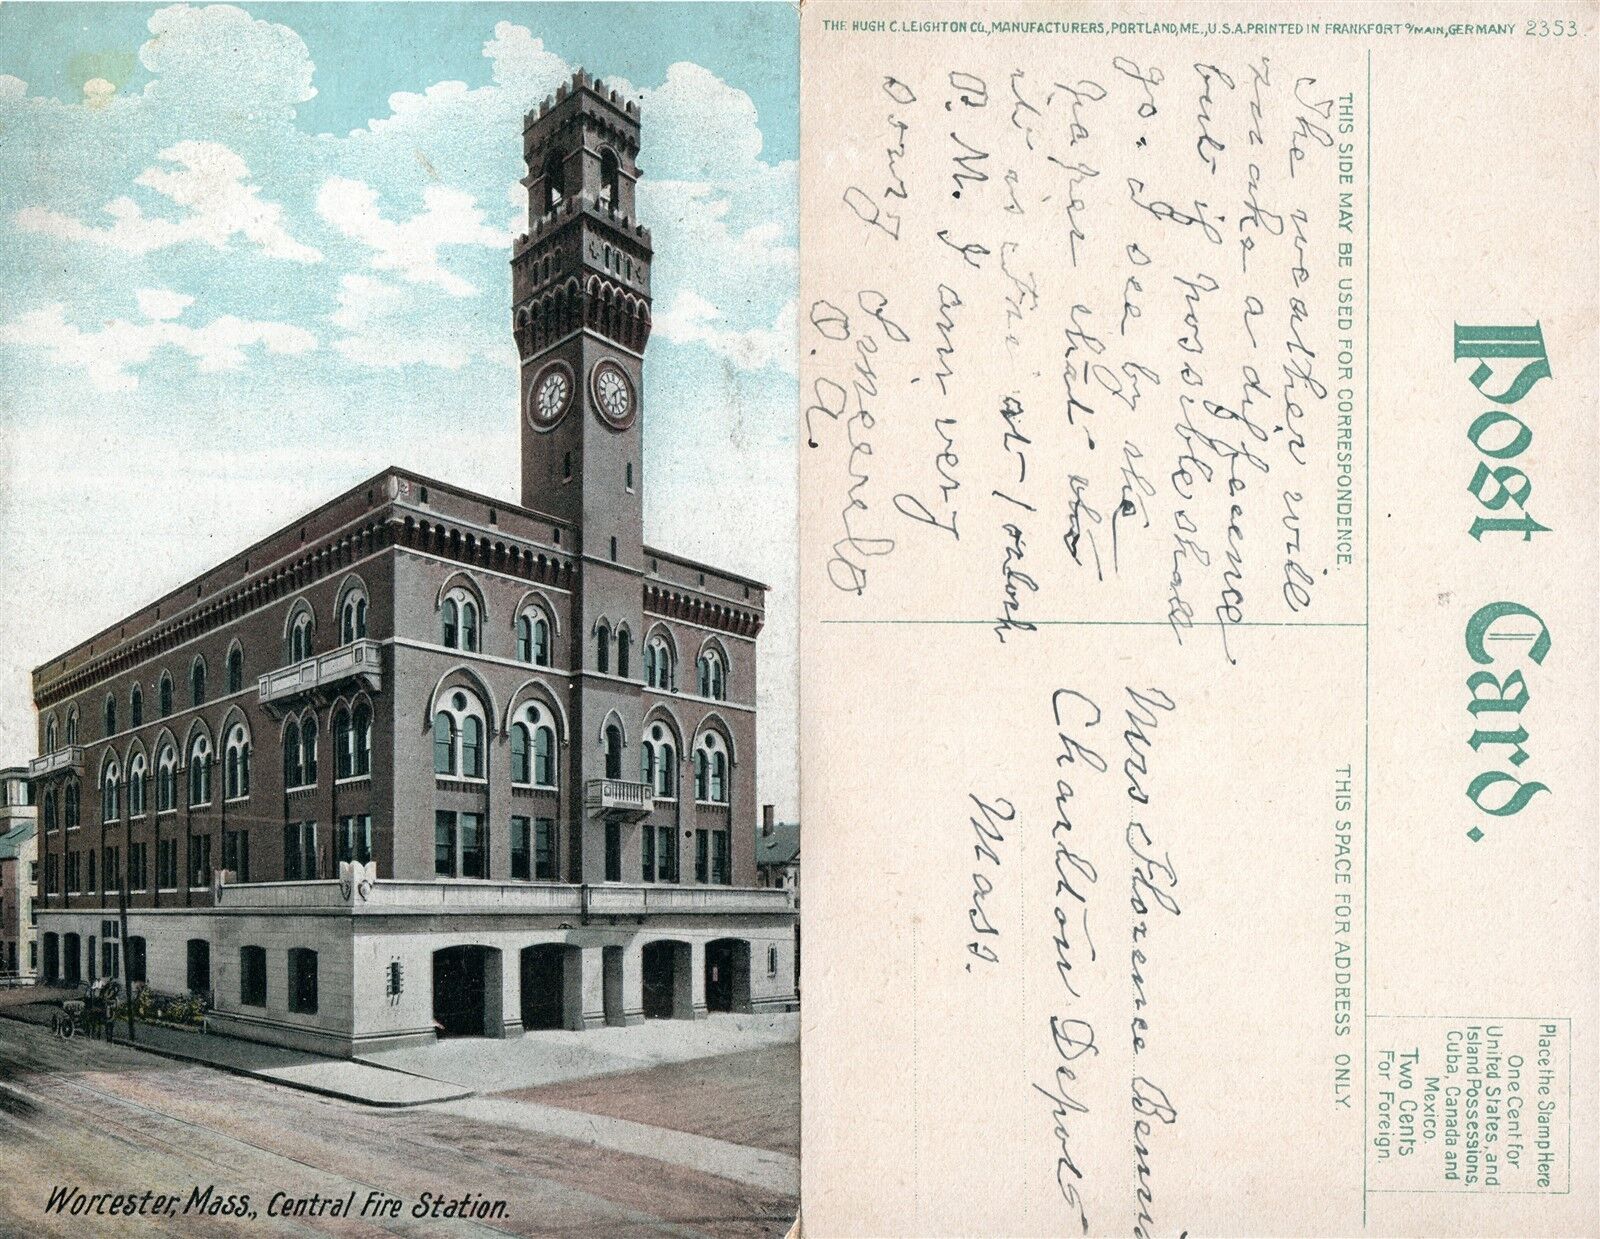 Worcester, Mass., Central Fire Station.
THE HUGH C. LEIGHTON CO., MANUFACTURERS, PORTLAND, ME., U.S.A. PRINTED IN FRANKFORT o/MAIN, GERMANY 2353.
Post Card.
THIS SIDE MAY BE USED FOR CORRESPONDENCE.
THIS SPACE FOR ADDRESS ONLY.
Place the Stamp Here
One Cent for
United States, and
Island Possessions,
Cuba, Canada and
Mexico.
Two Cents
For Foreign.
The weather will
make a diffeence
but if possible shall
go. I see by the
paper that
it is at 1 o'clock
P. M. I am very
Sorry Sincerely
Mrs Florence
Charlton Depot
Mass.